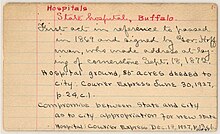 Hospitals
State hospital, Buffalo.
First act in reference to passed
in 1869 and signed by Gov. Hoff
man, who made address at lay
ing of cornerstone Sept. 18, 1872.
Hospital grounds, 85 acres deeded to
city. Courier Express June 30, 1927,
p. 24, c. 1.
Compromise between State and City
as to city appropriation for new State
Hospital: Courier Express Dec. 17, 1927,